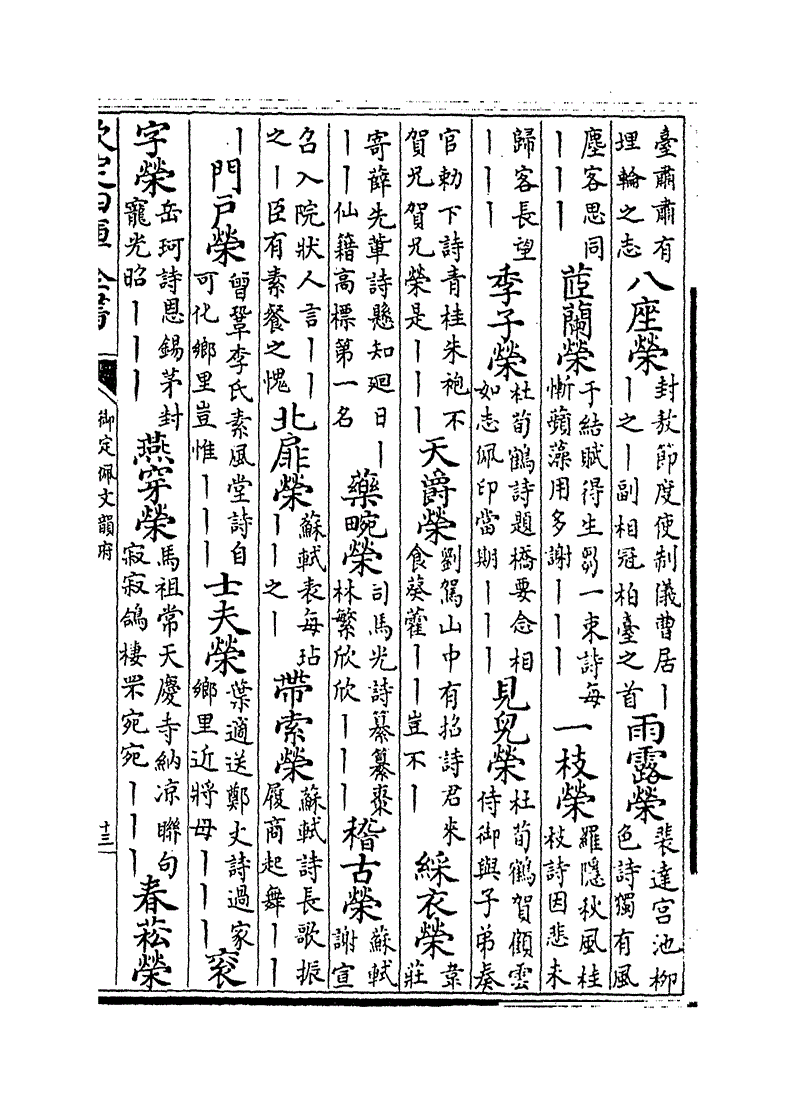 臺肅肅有埋輪之志八座榮封敖節度使制儀曹居｜｜之｜副相冠柏臺之首雨露榮裴達宮池柳色詩獨有風
塵客思同｜｜｜茝蘭榮于結賦得生芻一束詩每慚蘋藻用多謝｜｜｜一枝榮羅隱秋風桂枝詩因悲未
歸客長望｜｜｜季子榮杜荀鶴詩題橋要念相如志佩印當期｜｜｜見兒榮杜荀鶴賀顧雲侍御與子弟奏
官勅下詩青桂朱袍不賀兄賀兄榮是｜｜｜天爵榮劉駕山中有招詩君來食葵藿｜｜豈不｜綵衣榮韋莊
寄薛先輩詩懸知廻日｜｜｜仙籍高標第一名藥畹榮司馬光詩纂纂棗林繁欣欣｜｜｜稽古榮蘇軾謝宣
召入院狀人言｜｜之｜臣有素餐之愧北扉榮蘇軾表每玷｜｜之｜帶索榮蘇軾詩長歌振履商起舞｜｜
｜門戸榮曾鞏李氏素風堂詩自可化鄉里豈惟｜｜｜士夫榮葉適送鄭丈詩過家鄉里近將母｜｜｜衮
字榮岳珂詩恩錫茅封寵光昭｜｜｜燕穿榮馬祖常天慶寺納凉聯句寂寂鴿棲罘宛宛｜｜｜春菘榮
欽定四庫全書
御定佩文韻府
十三